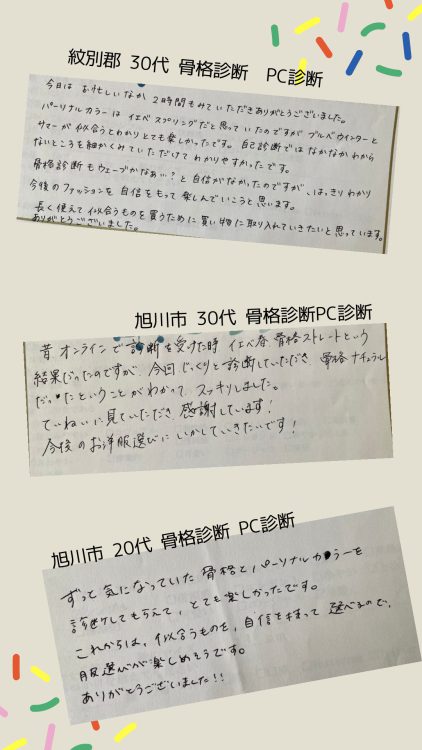 紋別郡 30代 骨格診断　PC診断
今日は お忙しいなか 2時間もみていただきありがとうございました。
パーソナルカラーは イエベ スプリングだと思っていたのですが ブルベウィンターと
サマーが似合うとわかりとても楽しかったです。自己診断ではなかなかわから
ないところを細かくみていただけてわかりやすかったです。
骨格診断もウェーブかなぁ…?と自信がなかったのですが、はっきりわかり
今後のファッションを自信をもって楽しんでいこうと思います。
長く使えて似合うものを買うために買い物に取り入れていきたいと思っています。
ありがとうございました。
旭川市 30代 骨格診断PC診断
昔オンラインで診断を受けた時 イエベ春、骨格ストレートという
結果だったのですが、今回じっくりと診断していただき 骨格ナチュラル
だったということがわかって スッキリしました。
ていねいに見ていただき 感謝しています!
今後のお洋服選びに いかしていきたいです!
旭川市 20代 骨格診断 PC診断
ずっと気になっていた骨格とパーソナルカラーを
診断してもらえて、とても楽しかったです。
これからは、似合うものを、自信を持って選べるので、
服選びが楽しめそうです。
ありがとうございました!!